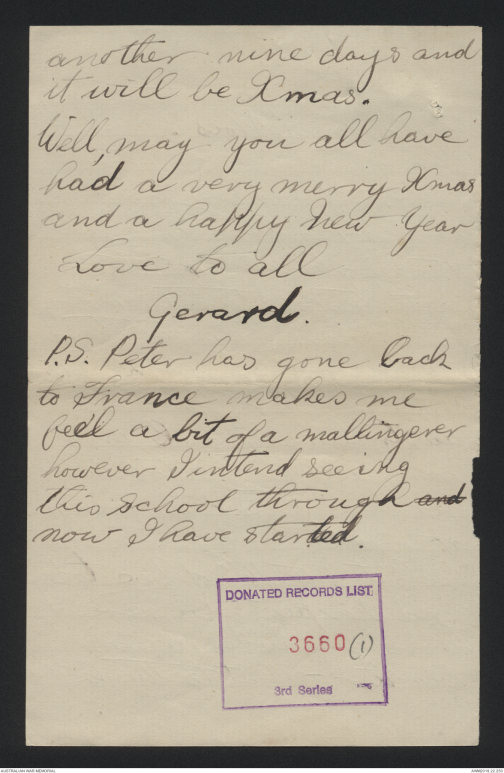 another nine days and
it will be Xmas.
Well, may you all have
had a very merry Xmas
and a happy New Year
Love to all
Gerard.
P.S. Peter has gone back
to France makes me
feel a bit of a mallingerer
however I intend seeing
this school through and
now I have started.
DONATED RECORDS LIST
3660 (1)
3rd Series
AUSTRALIAN WAR MEMORIAL